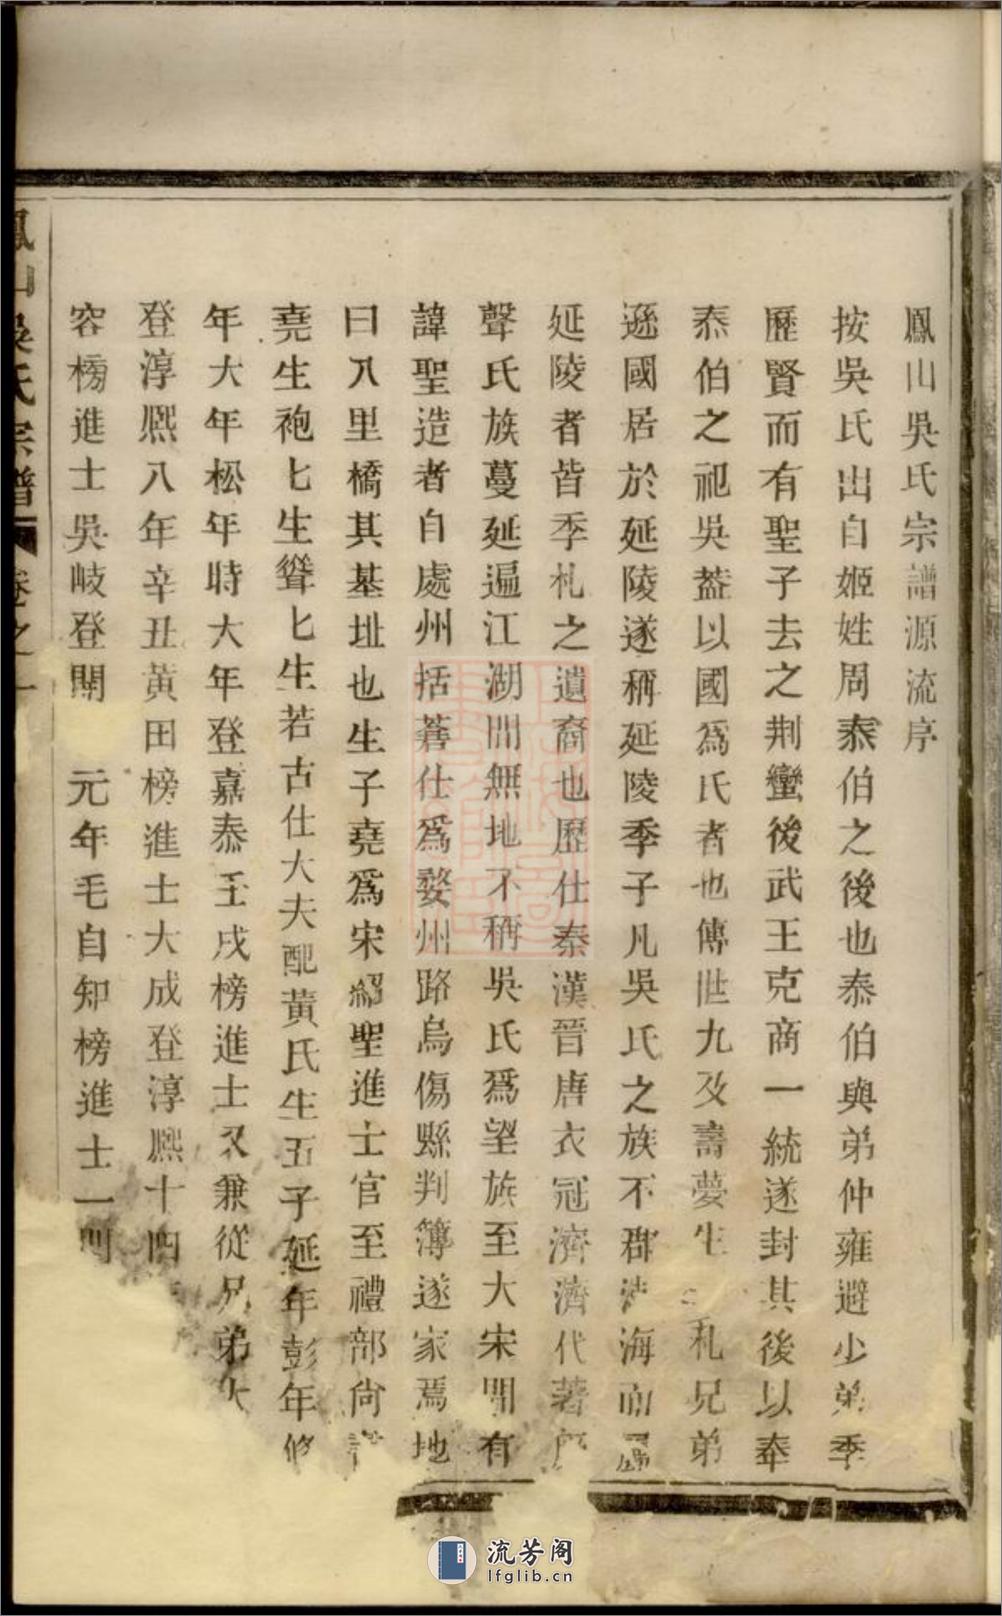 鳳山吳氏宗譜源流序
按吳氏出自姬姓周泰伯之後也泰伯與弟仲雍避少弟季
歷賢而有聖子去之荆蠻後武王克商一統遂封其後以奉
泰伯之祀吳葢以國爲氏者也傳世九及壽夢生札兄弟
遜國居於延陵遂稱延陵季子凡吳氏之族不郡海而
延陵者皆季札之遺裔也歷仕秦漢晉唐衣冠濟濟代著
聲氏族蔓延遍江湖間無地不稱吳氏爲望族至大宋間有
諱聖造者自處州括蒼仕爲婺州路烏傷縣判簿遂家焉地
曰八里橋其基址也生子堯爲宋紹聖進士官至禮部尙
堯生袍匕生聳匕生若古仕大夫配黃氏生五子延年彭年修
年大年松年時大年登嘉泰壬戌榜進士又兼從兄弟大
登淳熙八年辛丑黃田榜進士大成登淳熙十四
容榜進士吳岐登開 元年毛自知榜進士一門
鳳山吳氏宗譜 卷之一
流芳阁
lfglib.cn